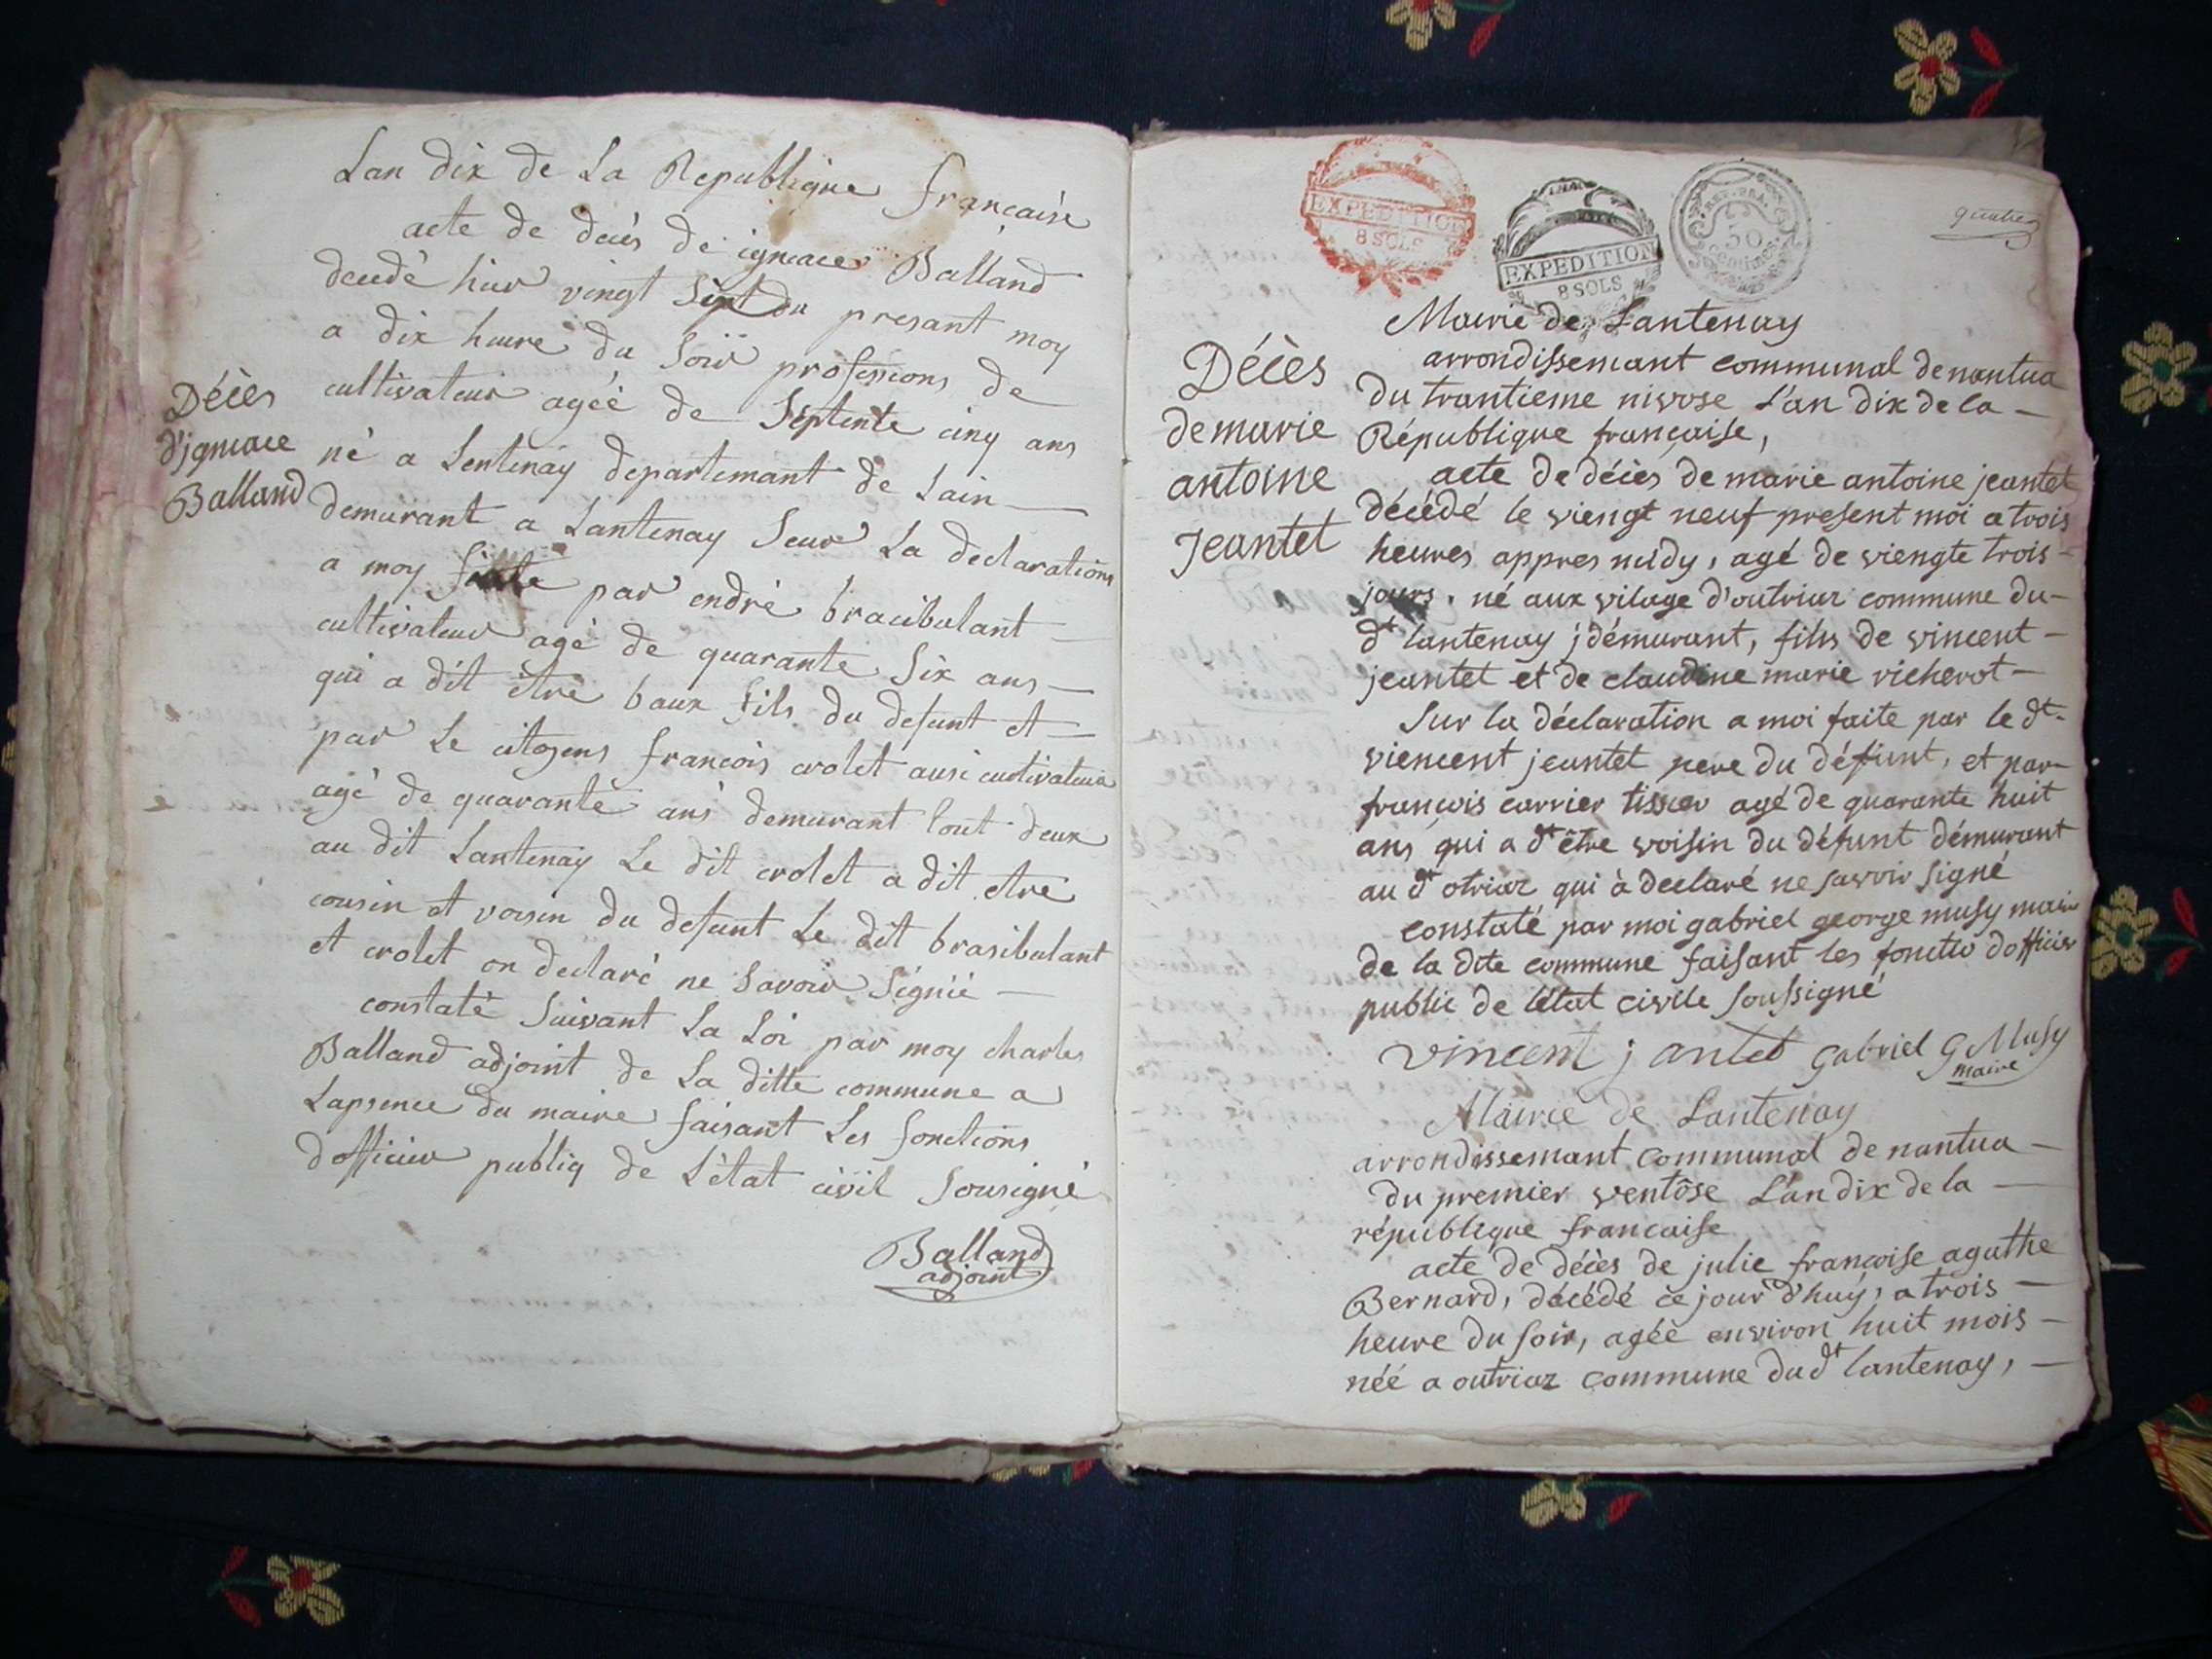 Lan dix de La Republique francaise
acte de decès de igneace Balland
decedé hier vingt Sept du presant moy
a dix heure du Soir professions de
cultivateur agéé de Septente cinq ans
né a Lentenay departemant de Lain
demurant a Lantenay Seur La declarations
a moy faite par endré bracibulant
cultivateur agé de quarante Six ans
qui a dit être baux fils du defunt et
par Le citoyens francois crolet ausi cultivateur
agé de quarante ans demurant tout deux
au dit Lantenay Le dit crolet a dit etre
cousin et voisin du defunt Le dit brasibulant
et crolet on declaré ne Savoir Signié
constaté Suivant La Loi par moy charles
Balland adjoint de La ditte commune a
Lapsence du maire faisant Les fonctions
dofficier publiq de L'état civil Sousigné
Balland
adjoint
Décès
d'jgneace
Balland
EXPEDITION
8 SOLS
EXPEDITION
8 SOLS
REP. FRA.
50
Centimes
Mairie de Lantenay
arrondissemant communal de nantua
du trantieme nivose L'an dix de la
République française,
acte de décès de marie antoine jeantet
décédé le viengt neuf present moi a trois
heures appres midy, agé de viengte trois
jours. né aux vilage d'outriaz commune du
dt lantenay j démurant, fils de vincent
jeantet et de claudine marie richerot
Sur la déclaration a moi faite par le dt.
viencent jeantet pere du défunt, et par
françois carrier tisser agé de quarante huit
ans, qui a dt être voisin du défunt démurant
au dt otriaz qui à declaré ne savoir signé
constaté par moi gabriel george musy maire
de la dite commune faisant les fonctio dofficier
public de létat civile soussigné
vincent j antet gabriel G Musy
maire
Décès
de marie
antoine
Jeantet
Mairie de Lantenay
arrondissemant communal de nantua
du premier ventôse L'an dix de la
république francaise
acte de décès de julie françoise agathe
Bernard, décédé ce jour d'huy, a trois
heure du soir, agéé environ huit mois
néé a outriaz commune du dt lantenay,